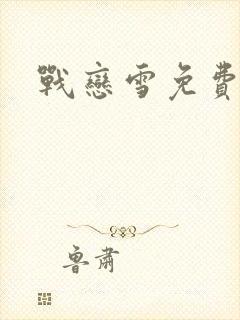 戰戀雪免費
魯肅